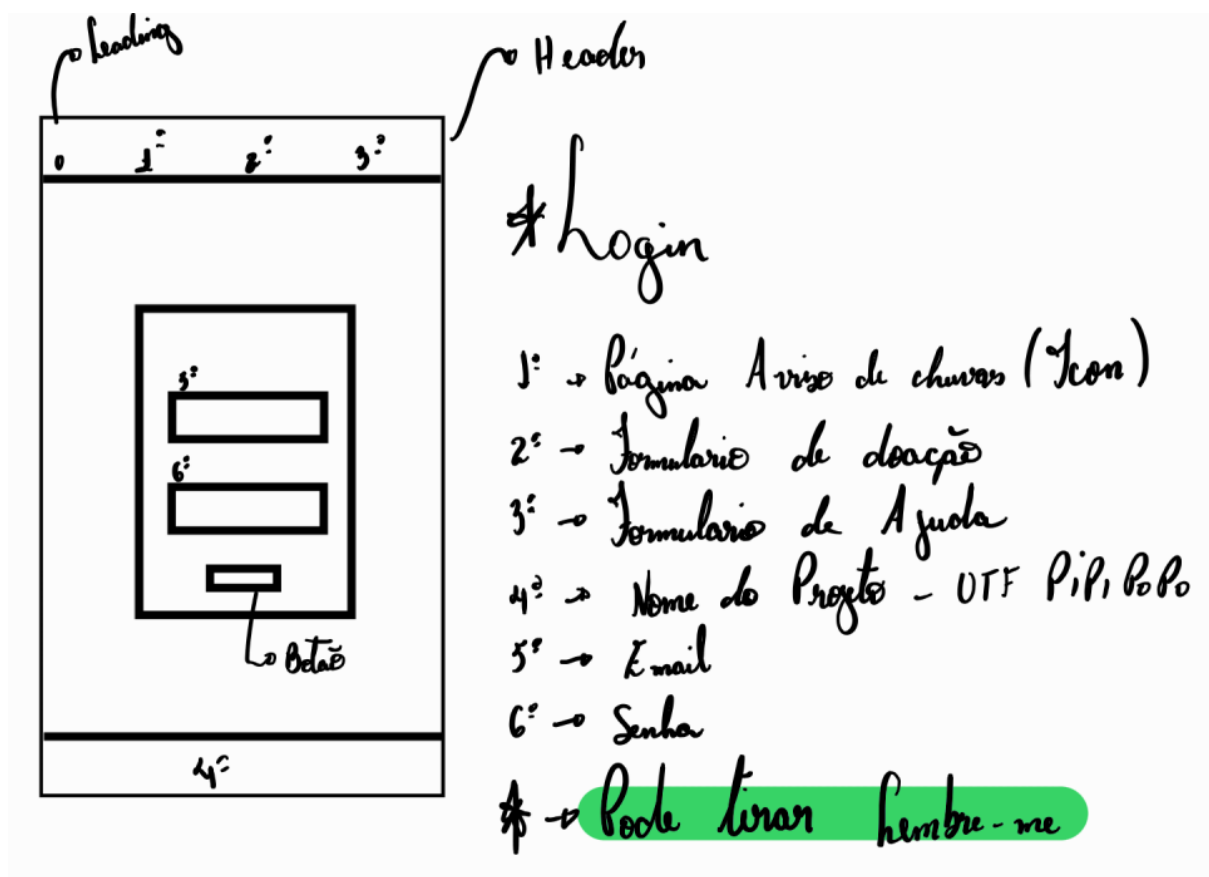 Leading
Header
0 1º 2º 3º
* Login
5º
6º
Botão
4º
1º → Página Aviso de chuvas (Icon)
2º → Formulario de doação
3º → Formulario de Ajuda
4º → Nome do Projeto - UTF PiPi PoPo
5º → Email
6º → Senha
* → Pode tirar Lembre-me